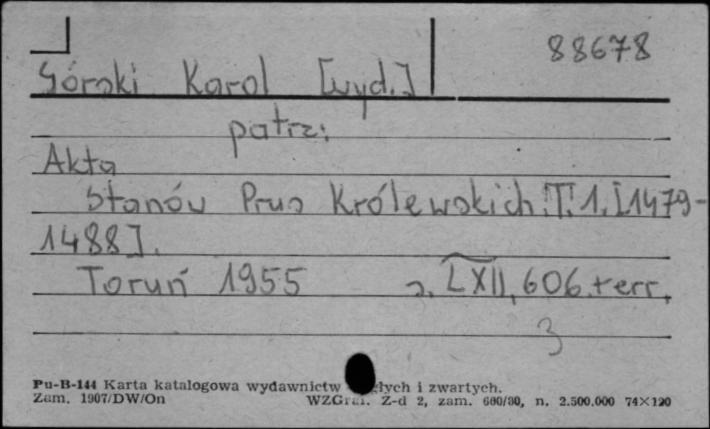 88678
Górski Karol [wyd.]
patrz:
Akta
Stanów Prus Królewskich. T. 1. [1479-
1488].
Toruń 1955 s. LXII, 606. + err.
3
Pu-B-144 Karta katalogowa wydawnictw ciągłych i zwartych.
Zam. 1907/DW/On WZGraf. Z-d 2, zam. 680/80, n. 2.500.000 74×120